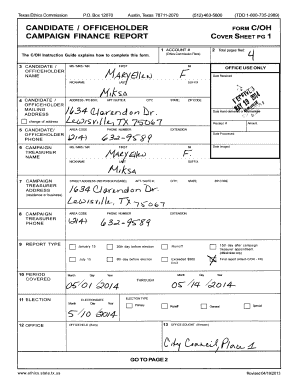 Texas Ethics Commission P.O. Box 12070 Austin, Texas 78711-2070 (512)463-5800 (TDD 1-800-735-2989)
CANDIDATE / OFFICEHOLDER CAMPAIGN FINANCE REPORT
FORM C/OH
COVER SHEET PG 1
The C/OH Instruction Guide explains how to complete this form.
1 ACCOUNT # (Ethics Commission Filers)
2 Total pages filed:
4
3 CANDIDATE / OFFICEHOLDER NAME
MS / MRS / MR FIRST MI
MaryEllen F.
NICKNAME LAST SUFFIX
Miksa
OFFICE USE ONLY
Date Received
4 CANDIDATE / OFFICEHOLDER MAILING ADDRESS
change of address
ADDRESS / PO BOX; APT / SUITE #; CITY; STATE; ZIP CODE
1634 Clarendon Dr.
Lewisville, TX 75067
Receipt # Amount
5 CANDIDATE/ OFFICEHOLDER PHONE
AREA CODE PHONE NUMBER EXTENSION
(214) 632-9589
Date Processed
6 CAMPAIGN TREASURER NAME
MS / MRS / MR FIRST MI
MaryEllen F.
NICKNAME LAST SUFFIX
Miksa
Date Imaged
7 CAMPAIGN TREASURER ADDRESS
(residence or business)
STREET ADDRESS (NO PO BOX PLEASE); APT / SUITE #; CITY; STATE; ZIP CODE
1634 Clarendon Dr.
Lewisville, TX 75067
8 CAMPAIGN TREASURER PHONE
AREA CODE PHONE NUMBER EXTENSION
(214) 632-9589
9 REPORT TYPE
January 15 30th day before election Runoff 15th day after campaign treasurer appointment (officeholder only)
July 15 8th day before election Exceeded $500 limit Final report (Attach C/OH - FR)
10 PERIOD COVERED
Month Day Year THROUGH Month Day Year
05/01/2014 05/14/2014
11 ELECTION
ELECTION DATE
Month Day Year
5/10/2014
ELECTION TYPE
Primary Runoff General Special
12 OFFICE
OFFICE HELD (if any)
13 OFFICE SOUGHT (if known)
City Council, Place 1
GO TO PAGE 2
www.ethics.state.tx.us